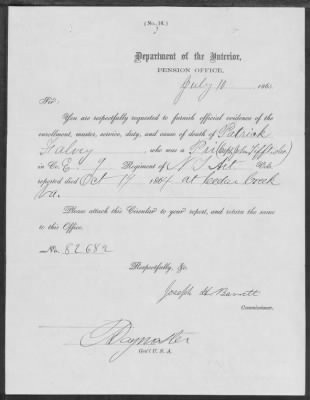 (No. 16.)
Department of the Interior,
PENSION OFFICE,
July 10 186
Sir:
You are respectfully requested to furnish official evidence of the
enrollment, muster, service, duty, and cause of death of Patrick
Falvey, who was a Pri (Capt John
in Co. E. 9 Regiment of N Y Art Vols.
reported died Oct 19 1864 at Cedar Creek
Va.
Please attach this Circular to your report, and return the same
to this Office.
No. 82682
Respectfully, &c.
Joseph H Barrett
Commissioner.
Gen'l U. S. A.